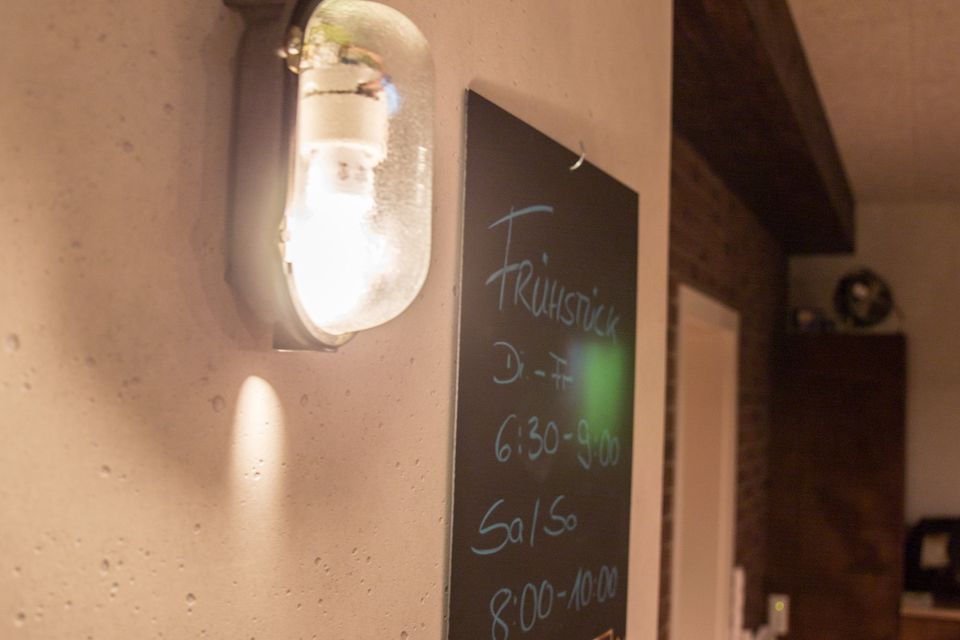 FRÜHSTÜCK
Di. - Fr
6:30-9:00
Sa/So
8:00-10:00